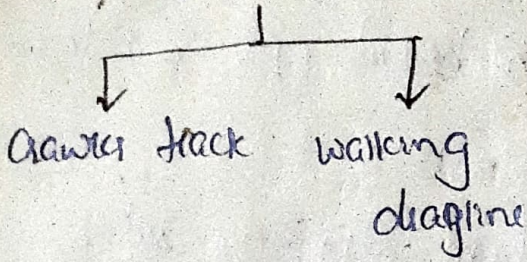 Crawler track
walking
dragline